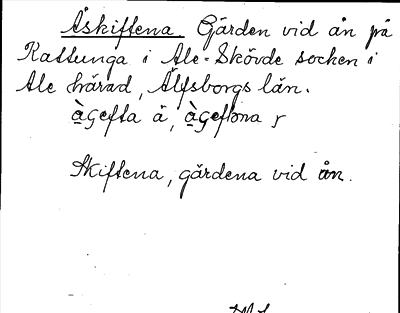 Åskiftena. Gärden vid ån på
Kattunga i Ale-Skövde socken i
Ale härad, Älfsborgs län.
Skiftena, gärdena vid ån.